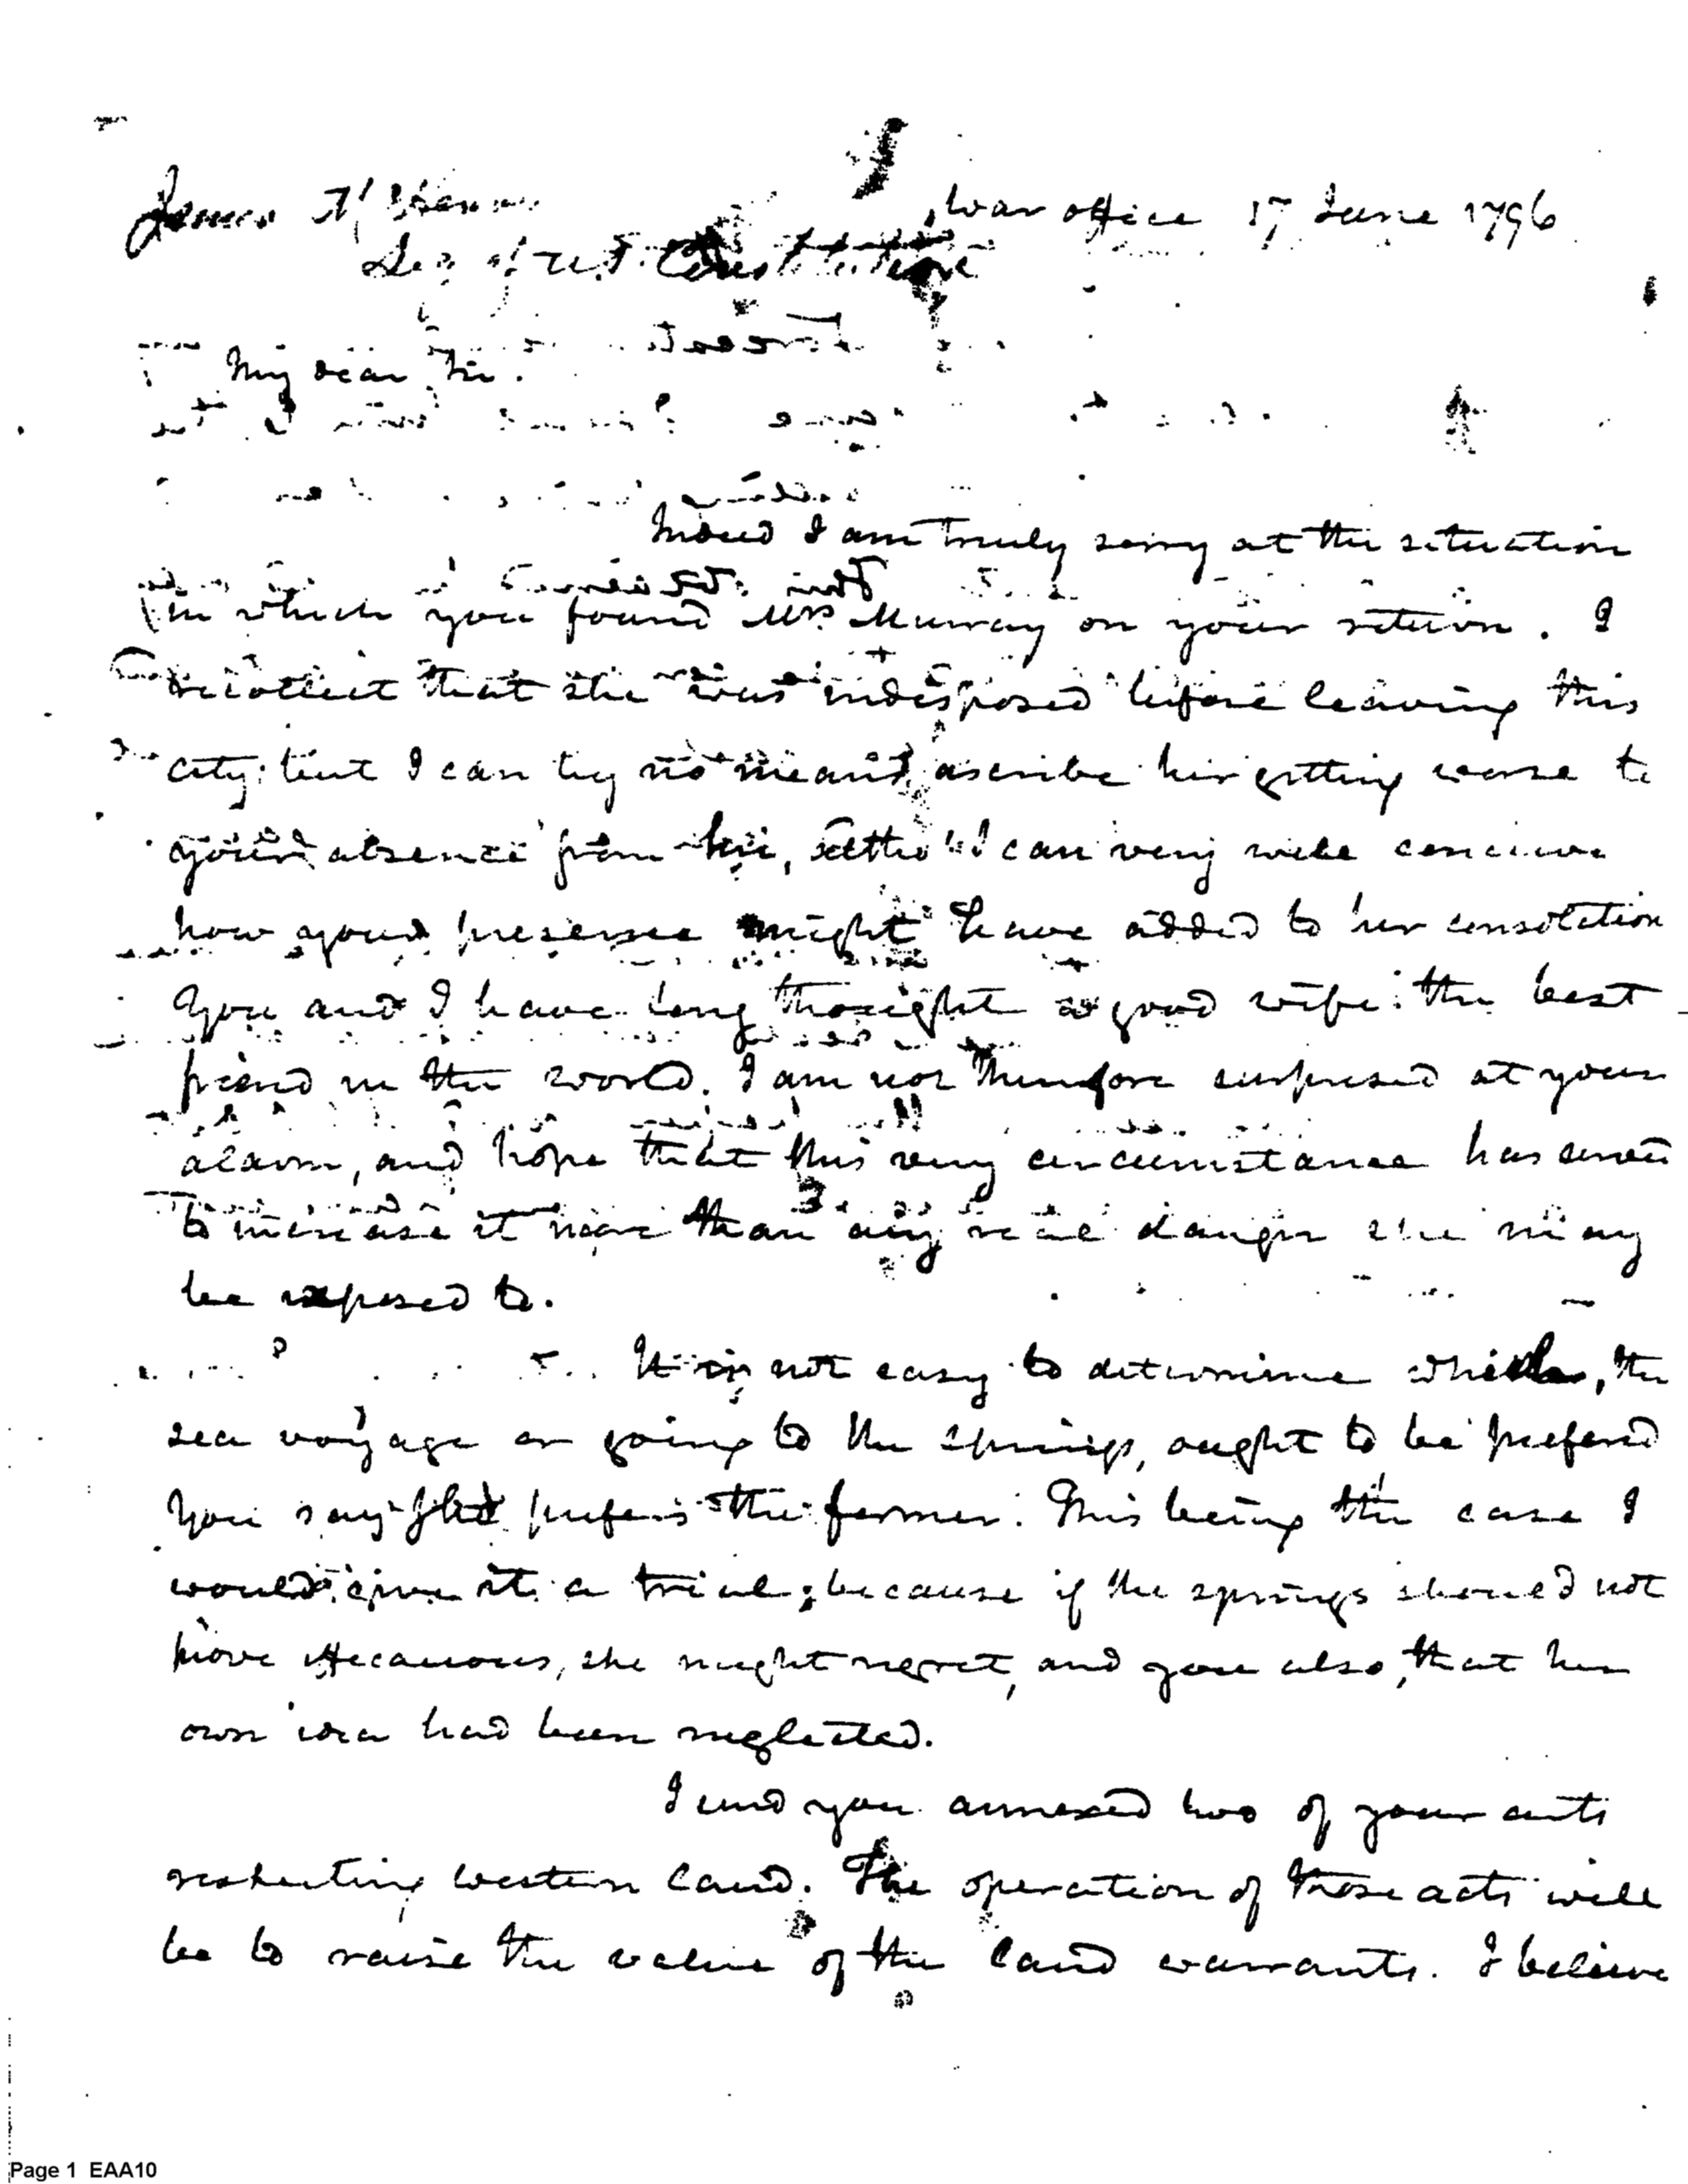 James McHenry
War office 17 June 1796
Sig of U.S. Constitution
My dear Sir.
Indeed I am truly sorry at the situation
in which you found Mrs. Murray on your return. I
recollect that she was indisposed before leaving this
city; but I can by no means ascribe her getting worse to
your absence from her, altho' I can very well conceive
how your presence might have added to her consolation
You and I have long thought a good wife the best
friend in the world. I am not therefore surprised at your
alarm, and hope that this very circumstance has served
to increase it more than any real danger she may
be exposed to.
It is not easy to determine which, the
sea voyage or going to the springs, ought to be prefered
You say she prefers the former. This being the case I
would give it a trial; because if the springs should not
prove efficacious, she might regret, and you also, that her
own idea had been neglected.
I send you annexed two of your acts
respecting western land. The operation of those acts will
be to raise the value of the land warrants. I believe
Page 1 EAA10